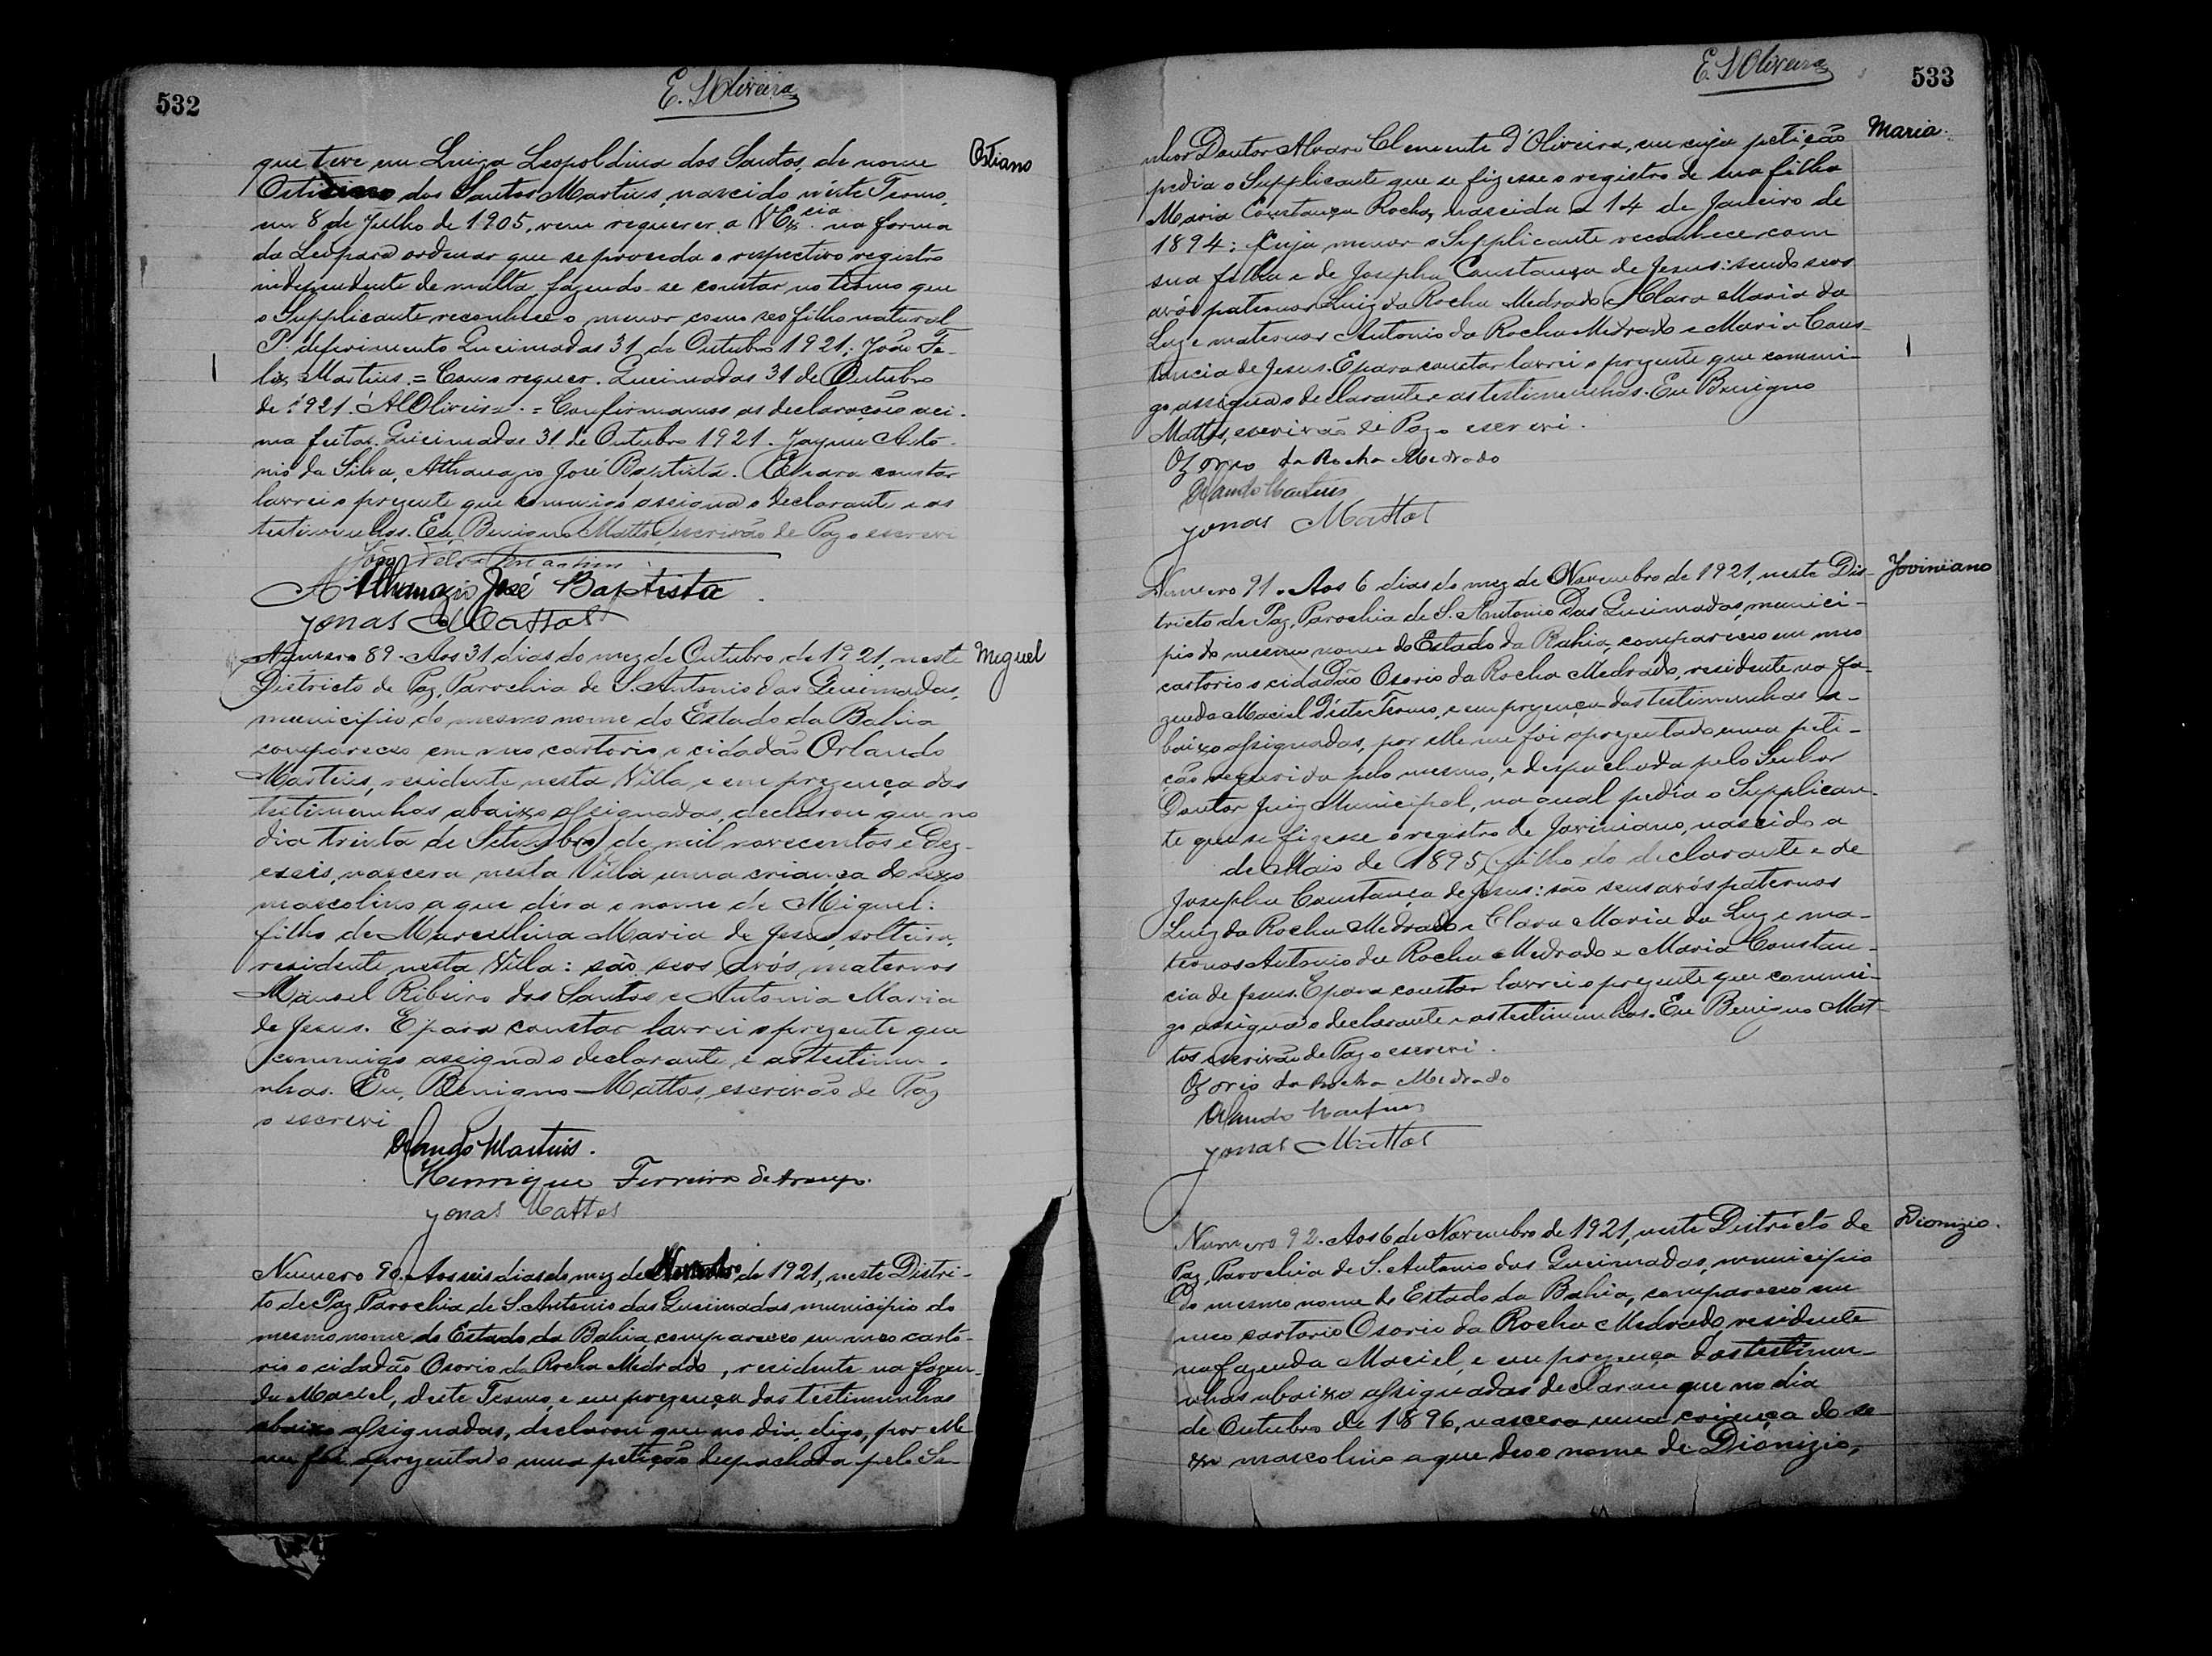 532
E. S Oliveira
que teve em Luiza Leopoldina dos Santos, de nome
Ostiano
dos Santos Martins, nascido n'este Termo,
em 8 de Julho de 1905, vem requerer a V Excia. na forma
da Lei para ordenar que se proceda o respectivo registro
independente de multa, fazendo-se constar no termo que
o Supplicante reconhece o menor como seo filho natural
P. deferimento Queimadas 31 de Outubro 1921: João Fe-
lix Martins. = Como requer. Queimadas 31 de Outubro
de 1921. AlOliveira. = Confirmamos as declarações aci-
ma feitas. Queimadas 31 de Outubro 1921. Jayme Anto-
nio da Silva, Athanazio José Baptista. E para constar
lavrei o prezente que commigo assigna o declarante e as
testimunhas. Eu, Benigno Mattos, escrivão de Paz o escrevi
João Felix Martins
Athanazio José Baptista
Jonas Mattos
Numero 89. Aos 31 dias do mez de Outubro de 1921, neste
Miguel
Districto de Paz, Parochia de S. Antonio das Queimadas,
municipio do mesmo nome do Estado da Bahia
compareceo em meo cartorio o cidadão Orlando
Martins, residente nesta Villa e em prezença das
testimunhas abaixo assignadas, declarou que no
dia trinta de Setembro de mil novecentos e dez-
eseis, nascera nesta Villa uma criança do sexo
mascolino a que déra o nome de Miguel:
filho de Marculina Maria de Jesus, solteira,
residente nesta Villa: são seos avós maternos
Manoel Ribeiro dos Santos e Antonia Maria
de Jesus. E para constar lavrei o prezente que
commigo assigna o declarante e as testimu-
nhas. Eu, Benigno Mattos, escrivão de Paz
o escrevi
Orlando Martins.
Henrique Ferreira de Araujo.
Jonas Mattos
Numero 90. Aos seis dias do mez de Novembro de 1921, neste Distri-
to de Paz, Parochia de S. Antonio das Queimadas municipio do
mesmo nome do Estado da Bahia, compareceo em meo carto-
rio o cidadão Osorio da Rocha Medrado, residente na fazen-
da Maciel, deste Termo, e em prezença das testimunhas
abaixo assignadas, declarou que no dia, digo, por elle
me foi aprezentado uma petição despachada pelo Se-
533
E. S Oliveira
nhor Doutor Alvaro Clemente d'Oliveira, em cuja petição
Maria.
pedia o Supplicante que se fizesse o registro de sua filha
Maria Constança Rocha, nascida a 14 de Janeiro de
1894: Cuja menor o Supplicante reconhece com
sua filha e de Josepha Constança de Jesus: sendo seos
avós paternos Luiz da Rocha Medrado e Clara Maria da
Luz e maternos Antonio da Rocha Medrado e Maria Cons-
tancia de Jesus. E para constar lavrei o prezente que commi-
go assigna o declarante e as testimunhas. Eu Benigno
Mattos, escrivão de Paz o escrevi.
Ozorio da Rocha Medrado
Orlando Martins
Jonas Mattos
Numero 91. Aos 6 dias do mez de Novembro de 1921, neste Dis-
Joviniano
tricto de Paz, Parochia de S. Antonio das Queimadas, munici-
pio do mesmo nome do Estado da Bahia, compareceo em meo
cartorio o cidadão Osorio da Rocha Medrado, residente na fa-
zenda Maciel d'este Termo, e em prezença das testimunhas a-
baixo assignadas, por elle me foi aprezentado uma peti-
ção requerida pelo mesmo, e despachada pelo Senhor
Doutor Juiz Municipal, na qual pedia o Supplican-
te que se fizesse o registro de Joviniano, nascido a
de Maio de 1895, filho do declarante e de
Josepha Constança de Jesus: são seus avós paternos
Luiz da Rocha Medrado e Clara Maria da Luz e ma-
ternos Antonio da Rocha Medrado e Maria Constan-
cia de Jesus. E para constar lavrei o prezente que commi-
go assigna o declarante e as testimunhas. Eu Benigno Mat-
tos escrivão de Paz o escrevi.
Ozorio da Rocha Medrado
Orlando Martins
Jonas Mattos
Numero 92. Aos 6 de Novembro de 1921, neste Districto de
Dionizio.
Paz, Parochia de S. Antonio das Queimadas, municipio
do mesmo nome do Estado da Bahia, compareceo em
meo cartorio Osorio da Rocha Medrado, residente
na fazenda Maciel, e em prezença das testimu-
nhas abaixo assignadas declarou que no dia
de Outubro de 1896, nascera uma criança do se-
xo mascolino a que deo o nome de Dionizio,